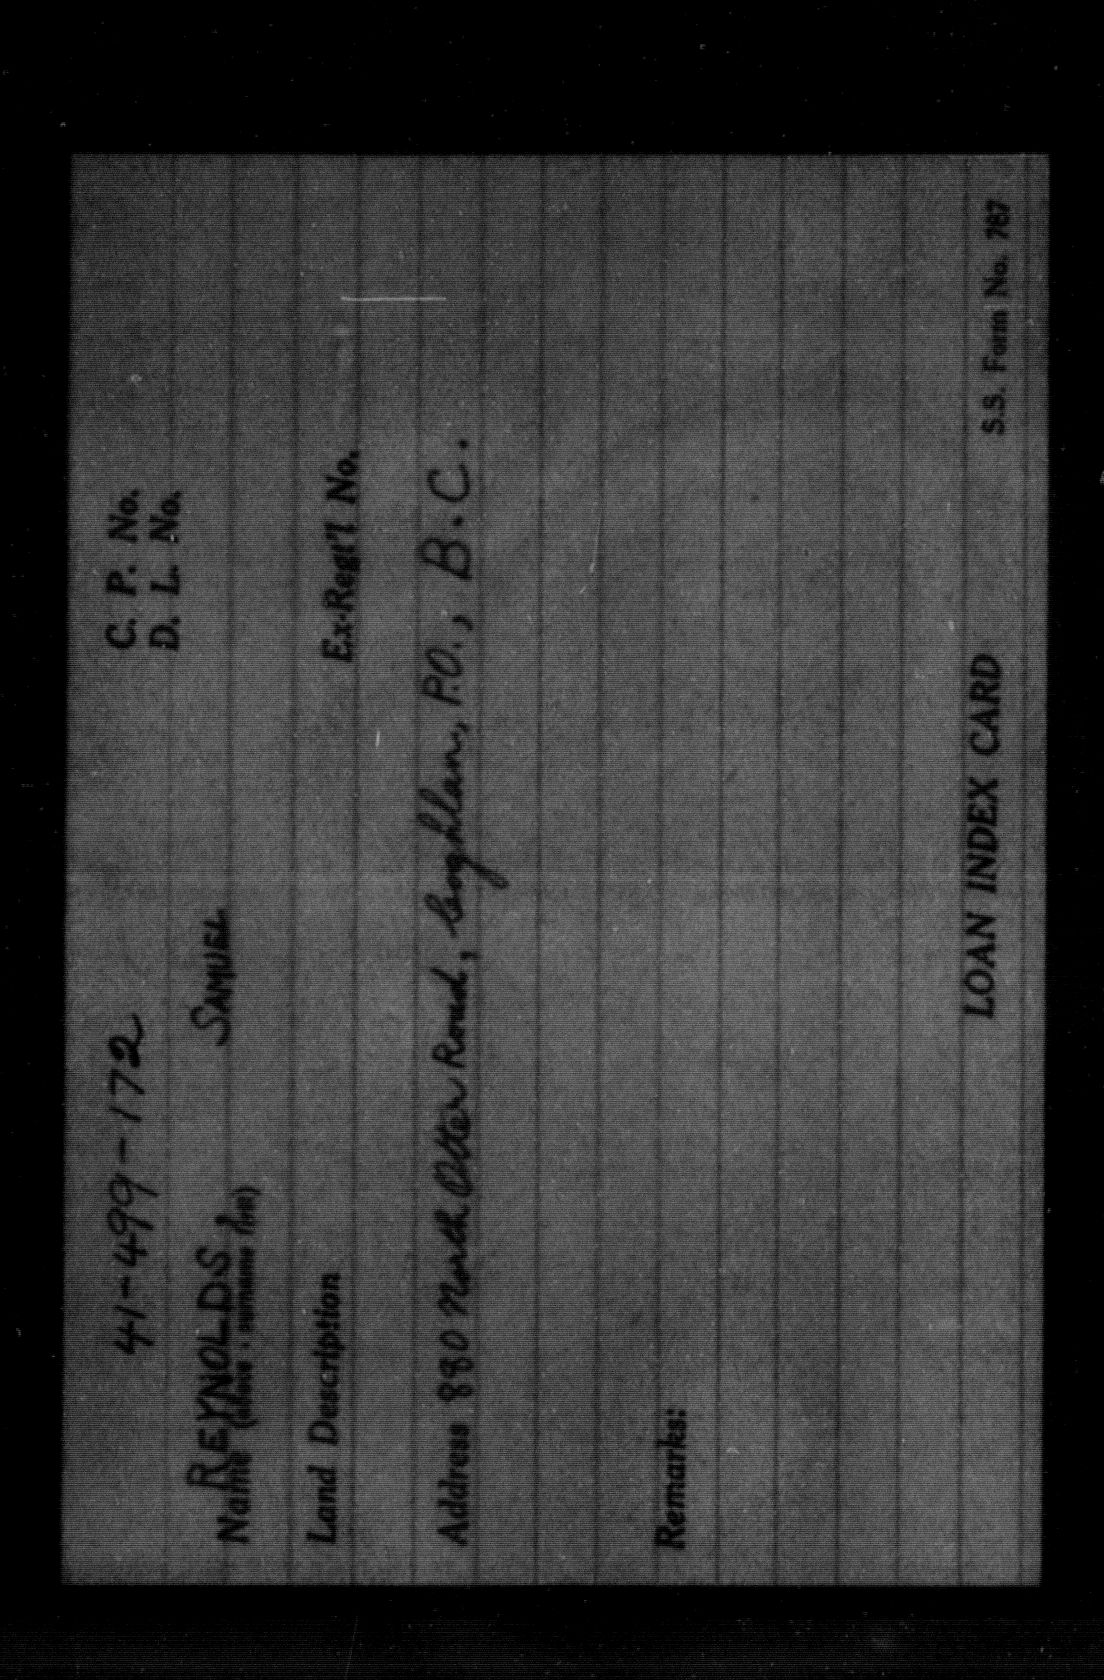 41-499-172
C. P. No.
D. L. No.
REYNOLDS, SAMUEL
Name (block - surname first)
Land Description
Ex-Regt'l No.
Address 880 North Otter Road, Coghlan, P.O., B.C.
Remarks:
LOAN INDEX CARD
S.S. Form No. 787